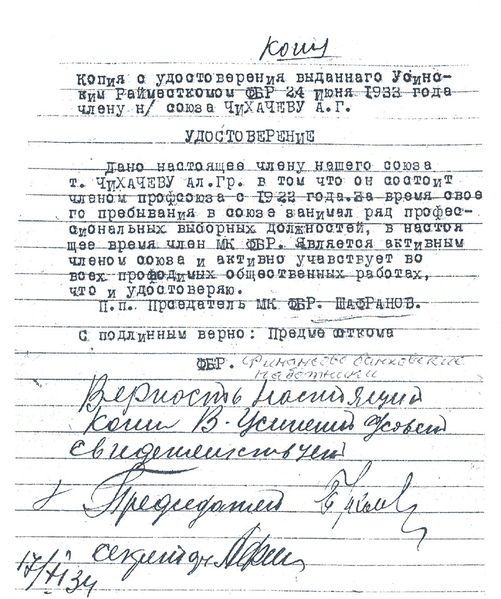 Копия
Копия с удостоверения выданнаго Усинс-
ким Райместкомом ФБР 24 июня 1933 года
члену н/ союза ЧИХАЧЕВУ А.Г.
УДОСТОВЕРЕНИЕ
Дано настоящее члену нашего союза
т. ЧИХАЧЕВУ Ал.Гр. в том что он состоит
членом профсоюза с 1922 года.За время свое
го пребывания в союзе занимал ряд профес-
сиональных выборных должностей, в настоя
щее время член МК ФБР. Является активным
членом союза и активно учавствует во
всех проводимых общественных работах,
что и удостоверяю.
П.п. Прседатель МК ФБР. ШАФРАНОВ.
С подлинным верно: Предме сткома
ФБР. Финансово банковские
работники
Верность настоящей
копии В-Усинский
свидетельствует
Председатель
секретарь
17/II 34